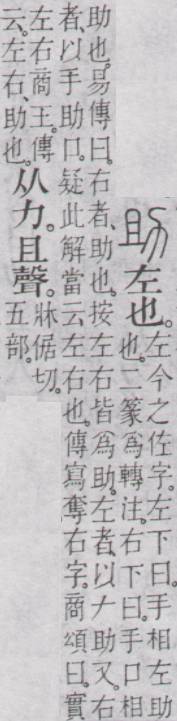 助左也。
左今之佐字。左下曰。手相左助
也。二篆爲轉注。右下曰。手口相
助也。易傳曰。右者、助也。按左右皆爲助。左者、以𠂇助又。右
者、以手助口。疑此解當云左右也。傳寫奪右字。商頌曰。實
左右商王。傳
云。左右、助也。
从力。且聲。
牀倨切。
五部。